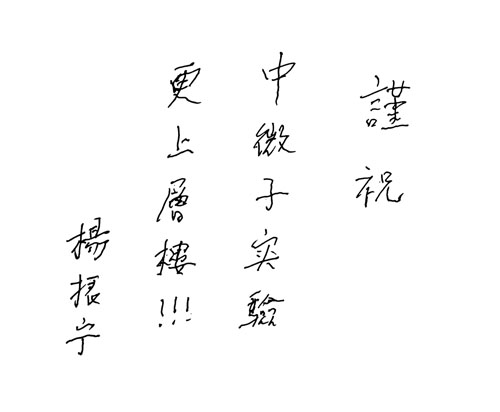 謹祝
中微子实驗
更上層樓!!!
楊振宁